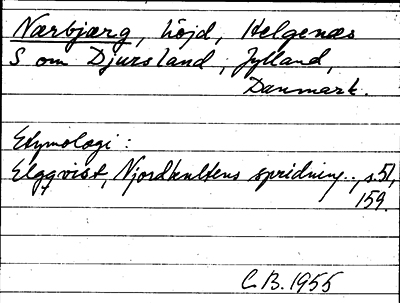 Nærbjærg, höjd, Helgenæs
S om Djursland, Jylland,
Danmark.
Etymologi:
Elgqvist, Njordkultens spridning.., s. 51,
159.
C.B. 1955